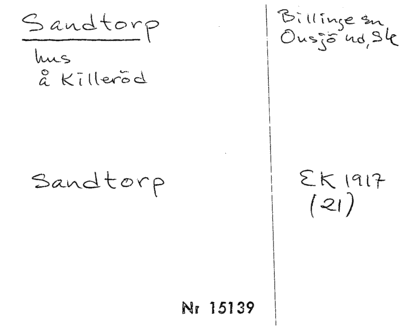 Sandtorp
hus
å Killeröd
Billinge sn
Onsjö hd, Sk
Sandtorp
EK 1917
(21)
Nr 15139